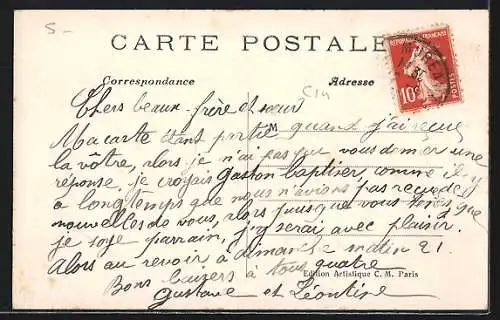 5-
CARTE POSTALE
Correspondance
Adresse
C14
REPUBLIQUE FRANÇAISE
10c
POSTES
Chers beaux-frère et sœur
Ma carte étant partie quand j'ai reçue
la vôtre, alors je n'ai pas que vous donner une
réponse, je croyais Gaston baptiser, comme il y
à longtemps que nous n'avions pas reçu de
nouvelles de vous, alors puisque vous tenez, que
je soye parrain, j'y serai avec plaisir.
Alors au revoir à dimanche matin 21.
Bons baisers à tous quatre
Edition Artistique C. M. Paris
Gustave et Léontine